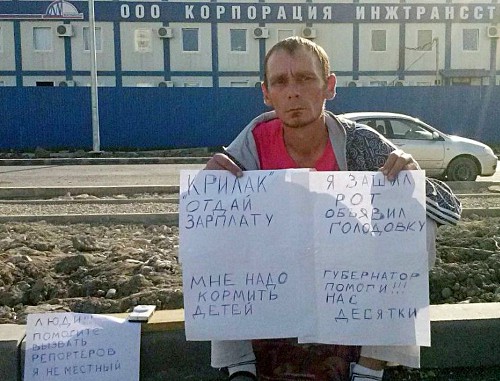 ООО КОРПОРАЦИЯ ИНЖТРАНССТ
КРИЛАК"
"ОТДАЙ
ЗАРПЛАТУ
МНЕ НАДО
КОРМИТЬ
ДЕТЕЙ
Я ЗАШИЛ
РОТ
ОБЪЯВИЛ
ГОЛОДОВКУ
ГУБЕРНАТОР
ПОМОГИ!!!
НАС
ДЕСЯТКИ
ЛЮДИ
ПОМОГИТЕ
ВЫЗВАТЬ
РЕПОРТЕРОВ
Я НЕ МЕСТНЫЙ